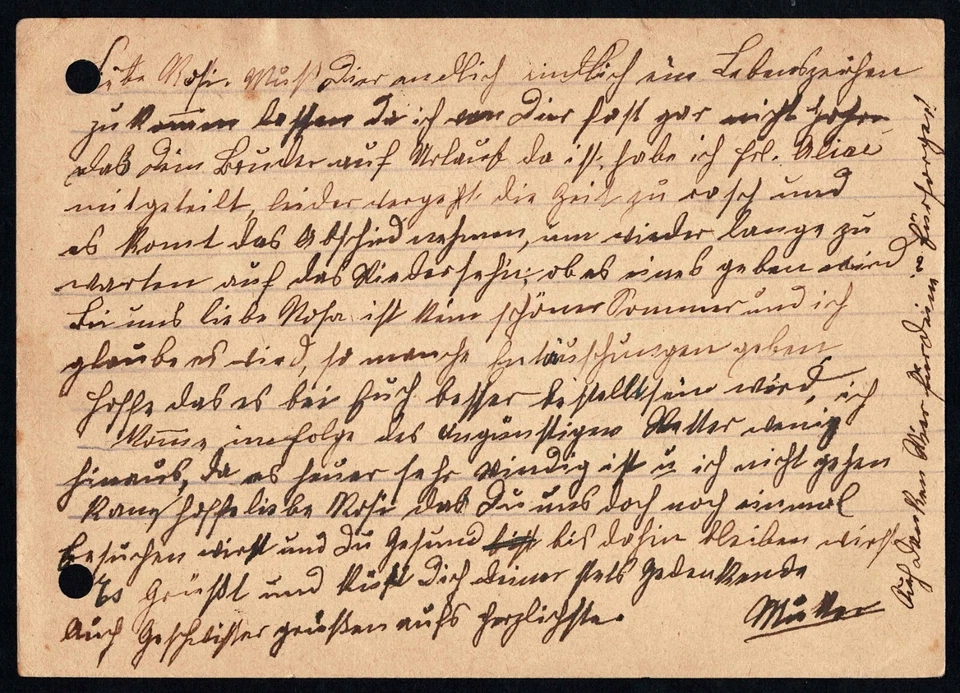 Liebe Rosi. Muß Dier endlich endlich ein Lebenszeichen
zu kommen lassen da ich von Dier fast gar nicht höhre
das Dein Bruder auf Urlaub da ist, habe ich Frl.
mitgeteilt, leider vergeht die Zeit zu rasch und
es komt das Abschied nehmen, um wieder lange zu
warten auf das Wiedersehn, ob es eines geben wird.
Bei uns liebe Rosa ist kein schöner Sommer und ich
glaube es wird, so manche Entäuschungen geben
hoffe das es bei Euch besser bestellt sein wird, ich
komme infolge des ungünstigen Wetter wenig
hinaus, da es heuer sehr windig ist u ich nicht gehen
kann, hoffe liebe Rosi das Du uns doch noch einmal
besuchen wirst und Du Gesund bis dahin bleiben wirst
Es Grüßt und Küßt Dich deiner stets Gedenkende
Mutter
Auch Geschwister grüßen aufs herzlichste.
Auch danken Wier für deine Fürsorge!